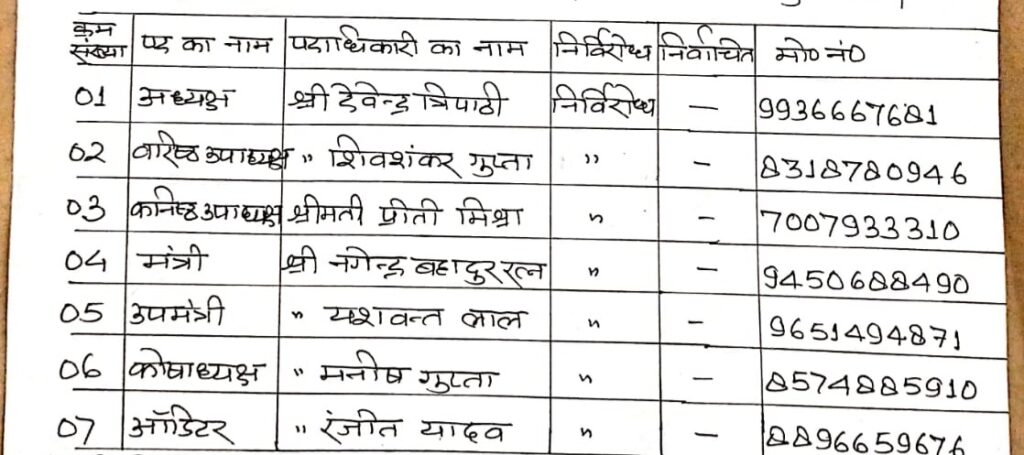 क्रम संख्या पद का नाम पदाधिकारी का नाम निर्विरोध निर्वाचित मो०नं०
01 अध्यक्ष श्री देवेन्द्र त्रिपाठी निर्विरोध – 9936667681
02 वरिष्ठ उपाध्यक्ष " शिवशंकर गुप्ता " – 8318780946
03 कनिष्ठ उपाध्यक्ष श्रीमती प्रीती मिश्रा " – 7007933310
04 मंत्री श्री नगेन्द्र बहादुर रत्न " – 9450688490
05 उपमंत्री " यशवन्त लाल " – 9651494871
06 कोषाध्यक्ष " मनीष गुप्ता " – 8574885910
07 ऑडिटर " रंजीत यादव " – 8896659676